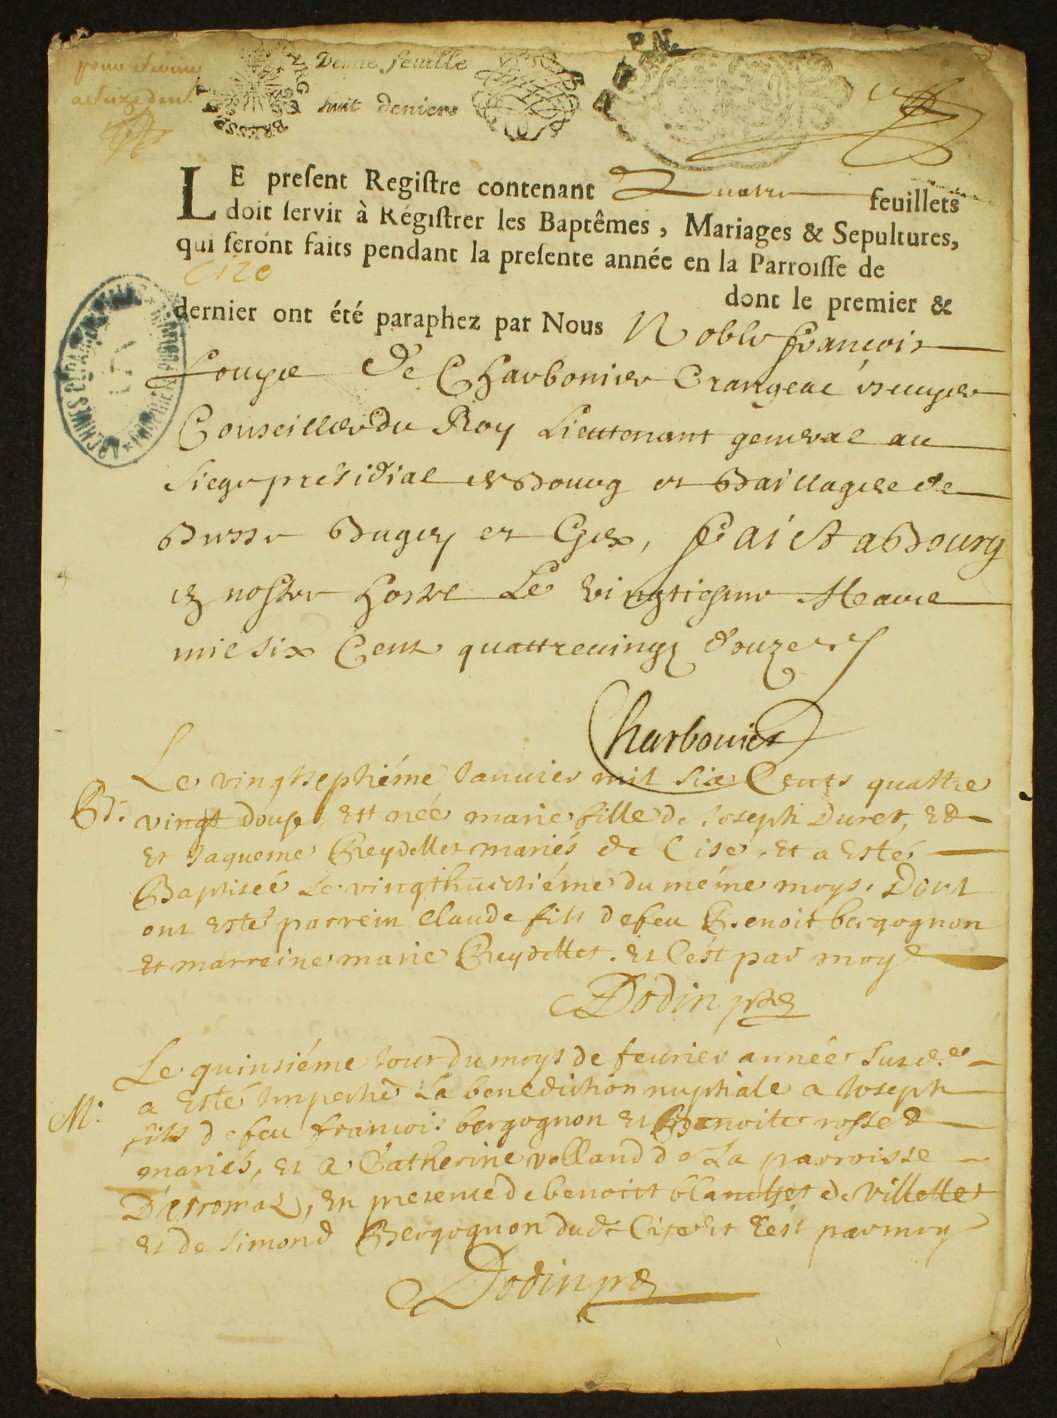 Demie feuille
huit deniers
P.N.
LE preſent Regiſtre contenant Quatre feuillets
doit ſervir à Régiſtrer les Baptêmes, Mariages & Sepultures,
qui ſerónt faits pendant la preſente année en la Parroiſſe de
Cize
dont le premier &
dernier ont été paraphez par Nous Noble françois
De Charbonier Crangeac escuyer
Conseiller du Roy Lieutenant general au
siege presidial de Bourg et Baillage de
Bresse Bugey et Gex, faict a Bourg
en nostre hostel Le vingtiesme
mil six Cent quattrevingz douze
Charbonier
Le vingtseptiéme Januier mil six Cents quattre
Bt. vingt douse est née marie fille de Joseph Duret,
Et Jaqueme Reydellet mariés de Cise, et a esté
Baptiseé le vingthuictiéme du méme moys. Dont
ont esté parrein Claude fils de feu Benoit bergognon
et marreine marie Reydellet. et C'est par moy
Dodin ptre
Le quinsiéme Jour du moys de feurier année susd.
M. a esté Impertie La benediction nuptiale a Joseph
fils de feu francois bergognon et Benoite rosset
mariés, et a Catherine volland de La parroisse
en presence de benoict blanchet de villettes
et de simond Bergognon dudt Cise et C'est par moy
Dodin ptre